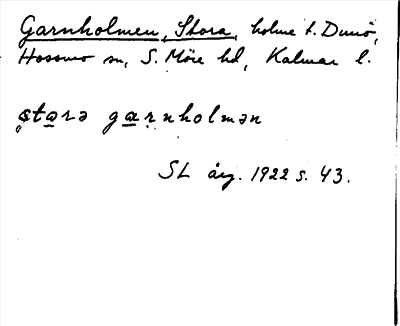 Garnholmen, Stora, holme t. Dunö,
Hossmo sn, S. Möre hd, Kalmar l.
stara garnholmən
SL årg. 1922 s. 43.